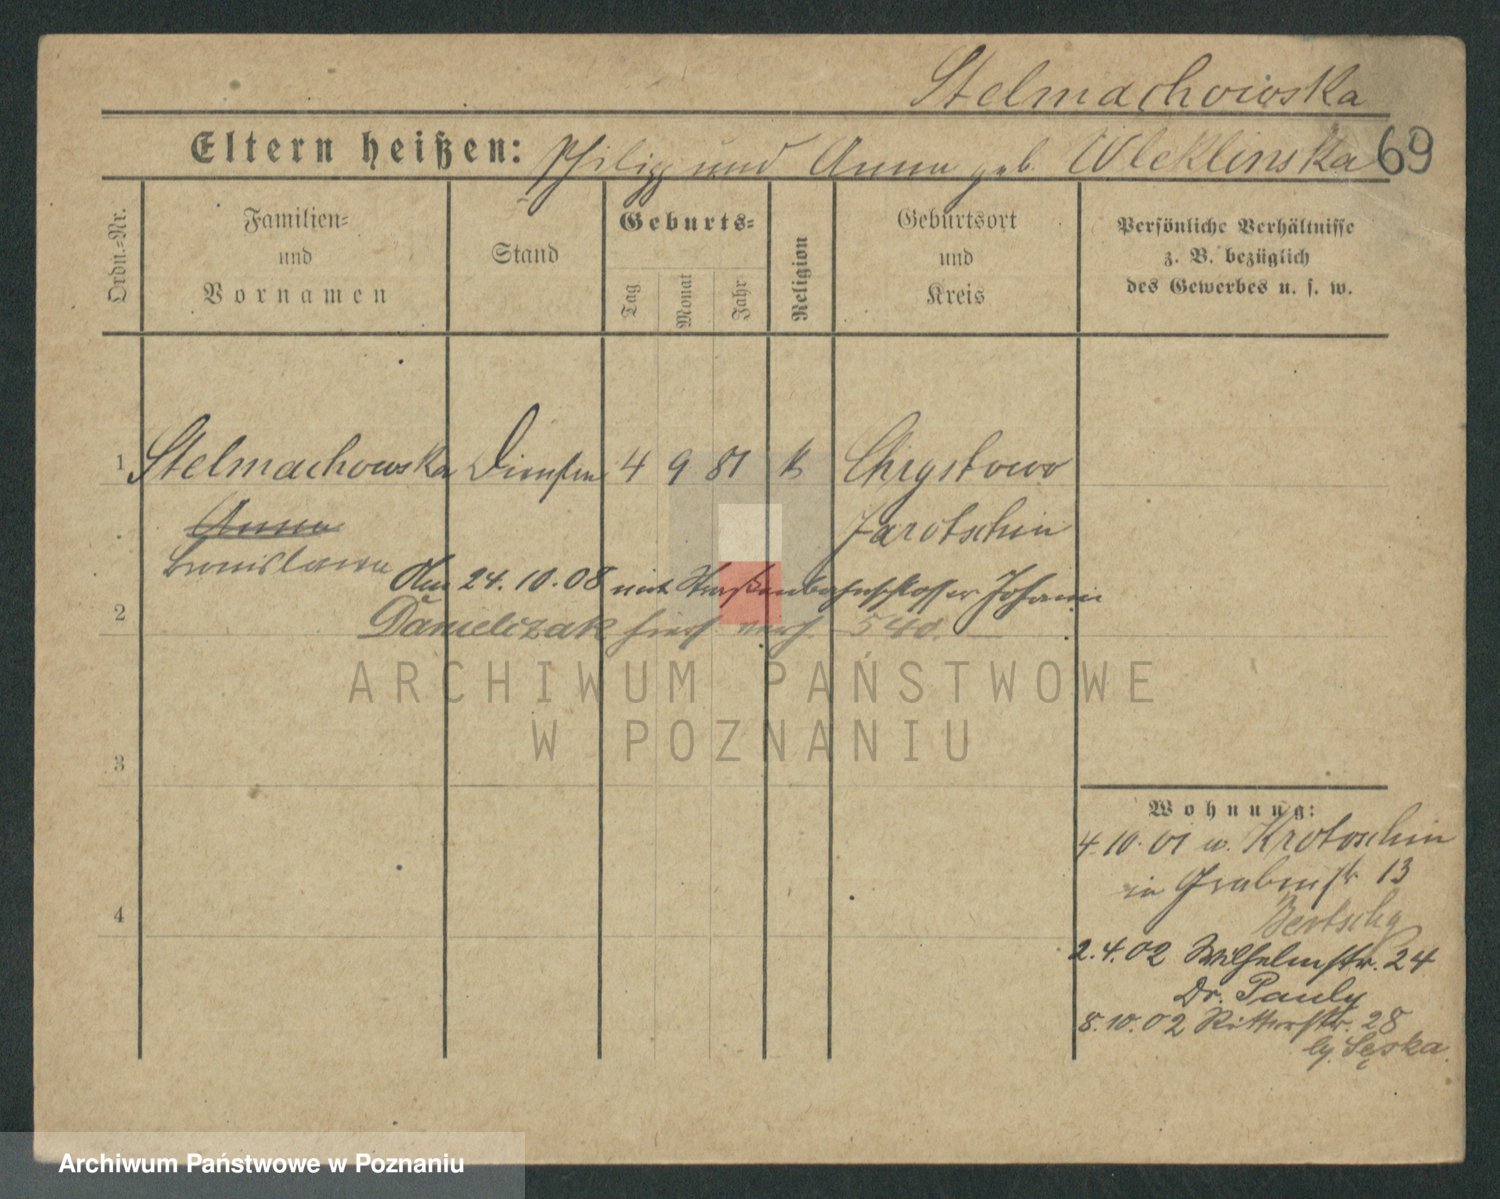 Stelmachowska
Eltern heißen: Philipp und Anna geb. Wleklinska 69
Ordn.=Nr.
Familien=
und
Vornamen
Stand
Geburts=
Tag
Monat
Jahr
Religion
Geburtsort
und
Kreis
Persönliche Verhältnisse
z. B. bezüglich
des Gewerbes u. s. w.
1 Stelmachowska 4 9 81 k
Jarotschin
Anna
Bronislawa
Am 24.10.08 mit Straßenbahnschlosser Johann
2
Danielczak hies. verh. 540.
ARCHIWUM PAŃSTWOWE
W POZNANIU
3
4
Wohnung:
4.10.01 v. Krotoschin
in Grabenstr 13
2.4.02 Wilhelmstr. 24
Dr. Pauly
8.10.02 Ritterstr. 28
Archiwum Państwowe w Poznaniu